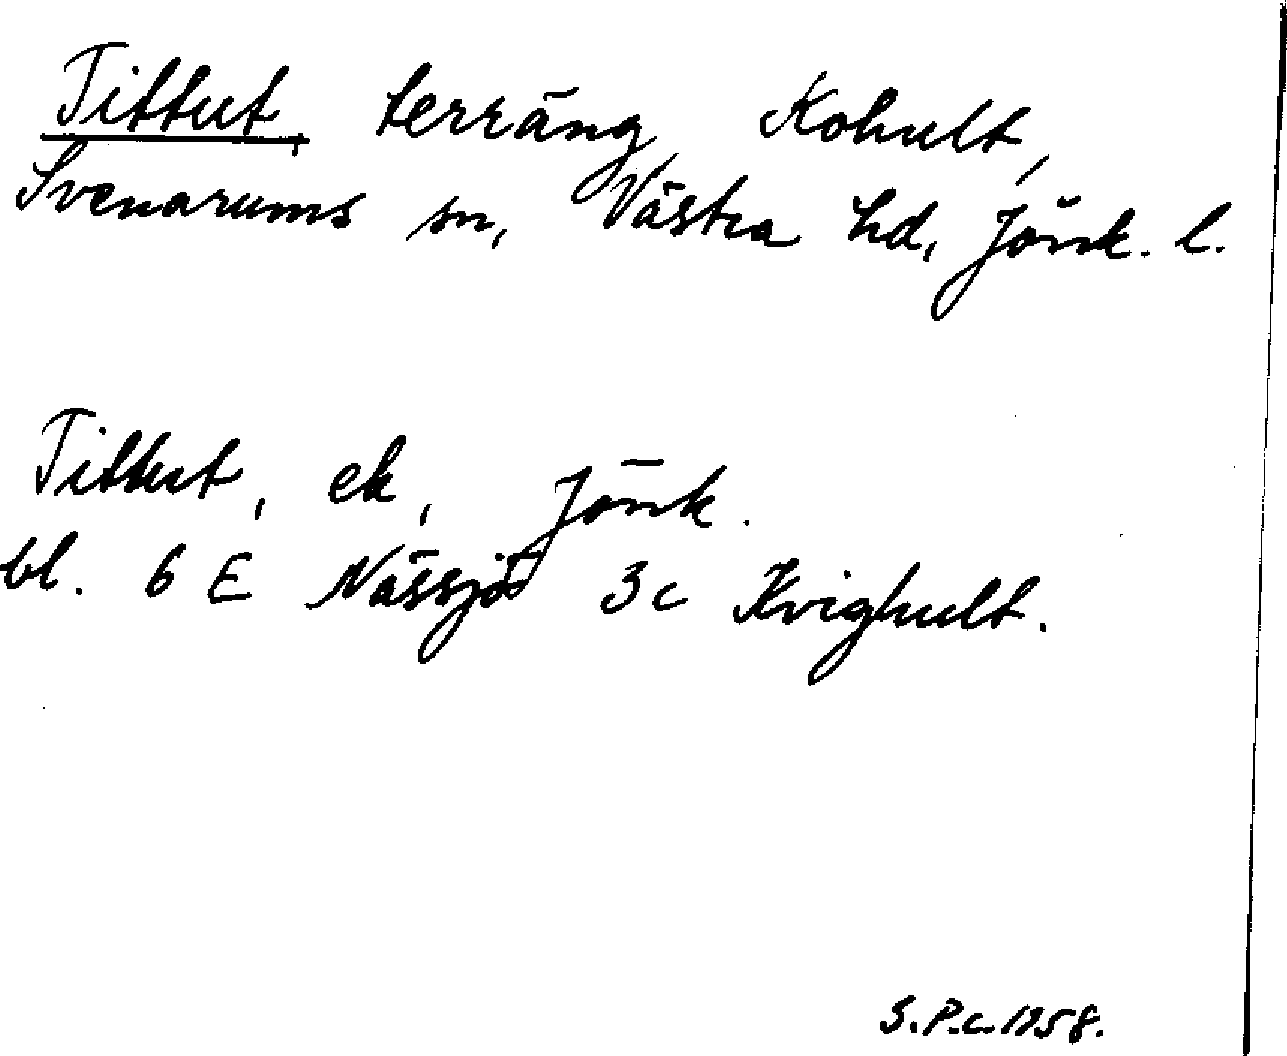 Tittut, terräng, Kohult,
Svenarums sn, Västra hd, Jönk. l.
Tittut, ek, Jönk.
bl. 6 E Nässjö 3c Kvighult.
S.P.c. 1958.